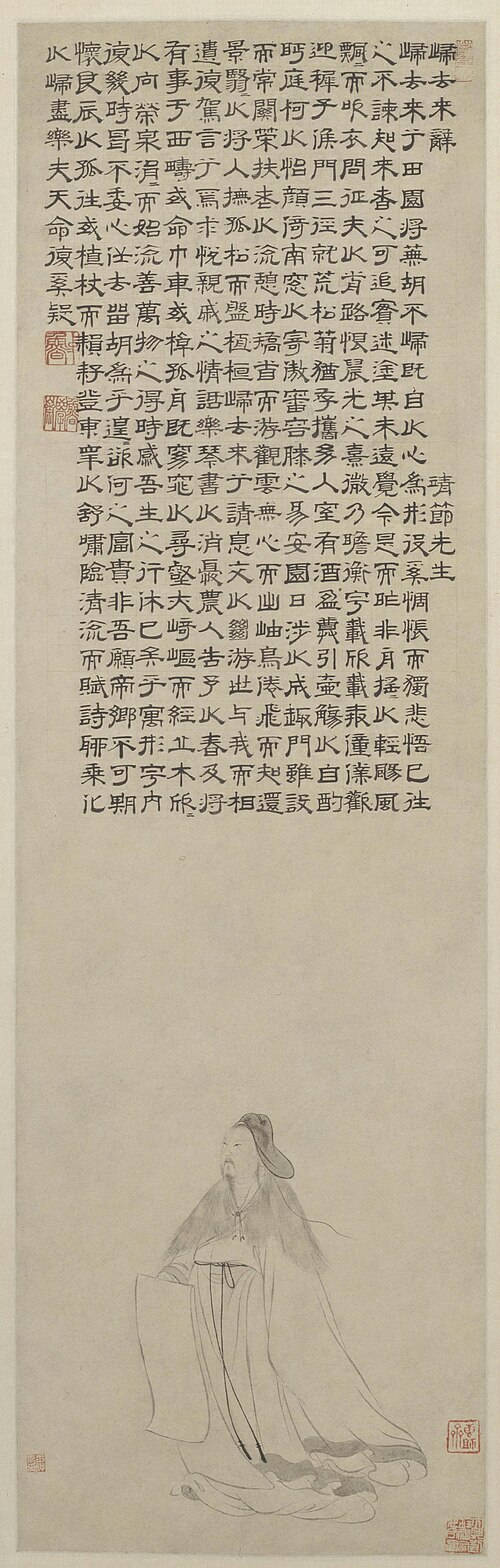 歸去來辭 靖節先生
歸去來兮田園將蕪胡不歸既自以心為形役奚惆悵而獨悲悟已往
之不諫知來者之可追實迷塗其未遠覺今是而昨非舟搖〻以輕颺風
飄〻而吹衣問征夫以前路恨晨光之熹微乃瞻衡宇載欣載奔僮僕歡
迎稚子候門三徑就荒松菊猶存攜幼入室有酒盈樽引壺觴以自酌
眄庭柯以怡顏倚南窗以寄傲審容膝之易安園日涉以成趣門雖設
而常關策扶老以流憩時矯首而游觀雲無心而出岫鳥倦飛而知還
景翳〻以將入撫孤松而盤桓歸去來兮請息交以絕游世与我而相
遺復駕言兮焉求悅親戚之情話樂琴書以消憂農人告予以春及將
有事乎西疇或命巾車或棹孤舟既窈窕以尋壑亦崎嶇而經丘木欣〻
以向榮泉涓〻而始流善萬物之得時感吾生之行休已矣乎寓形宇內
復幾時曷不委心任去留胡為乎遑〻欲何之富貴非吾願帝鄉不可期
懷良辰以孤往或植杖而耔登東皋以舒嘯臨清流而賦詩聊乘化
以歸盡樂夫天命復奚疑